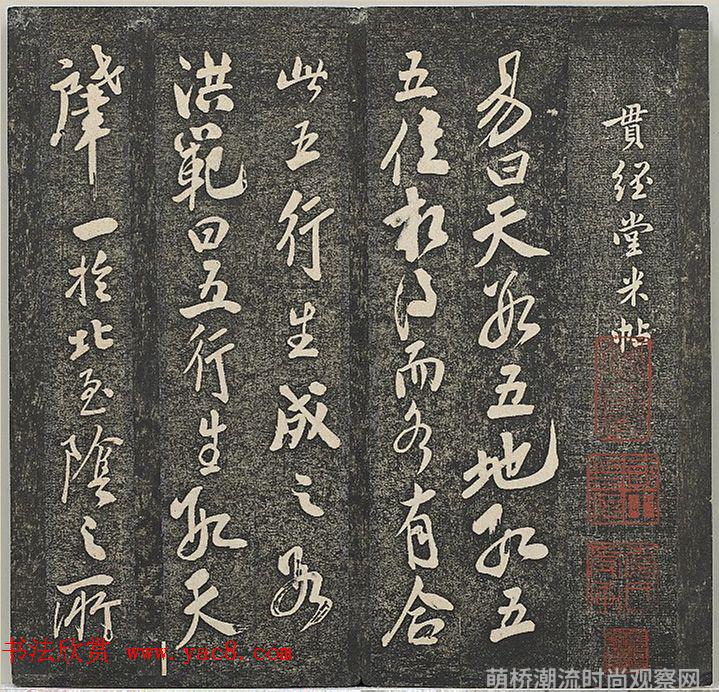 貫經堂米帖
易曰天數五地數五
五位相得而各有合
此五行生成之數
洪範曰五行生數天
肇一於北至陰之所
书法欣赏 www.yac8.com
萌桥潮流时尚观察网